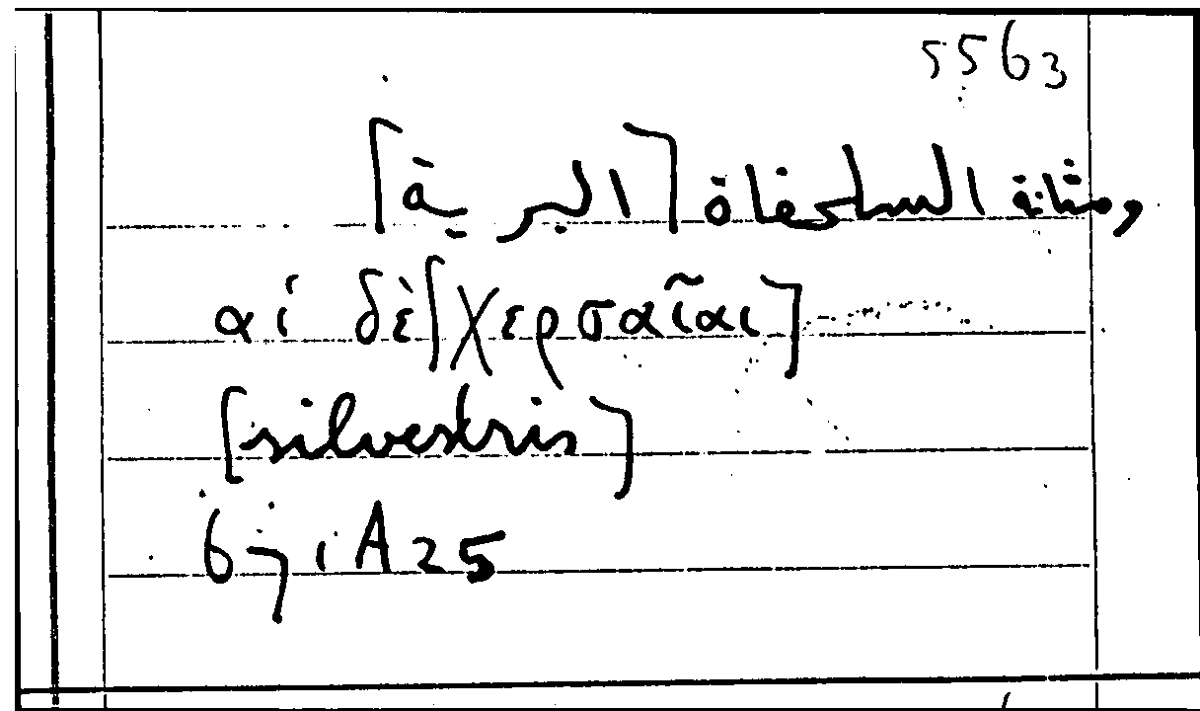 5563
ومثانة السلحفاة [البرية]
αἱ δὲ [χερσαῖαι]
[silvestris]
671A25